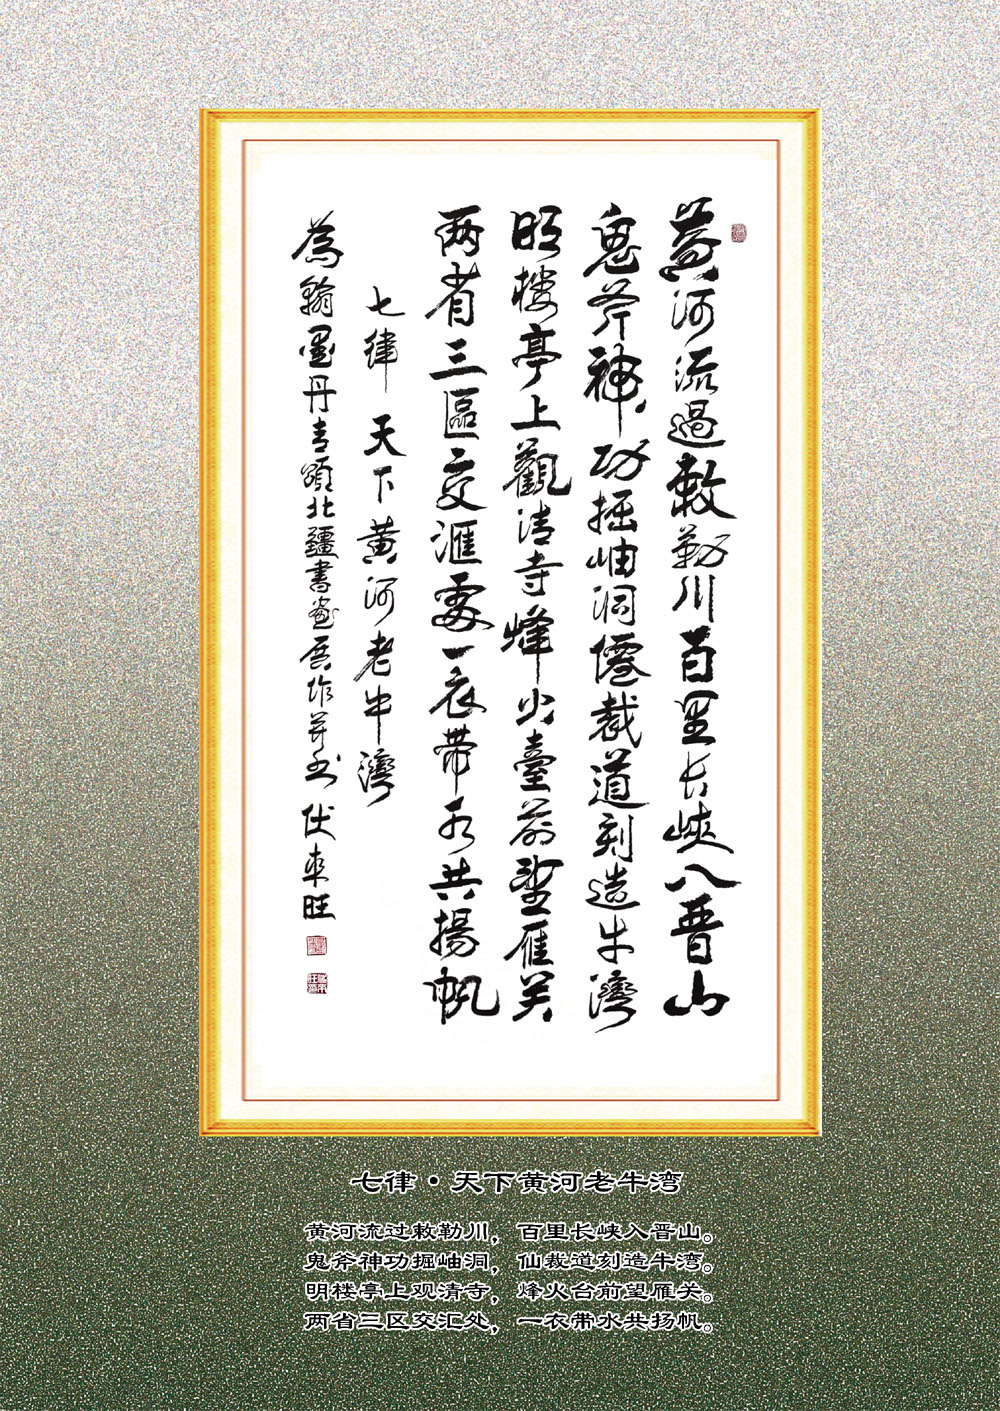 黄河流過敕勒川百里长峽入晋山
鬼斧神功掘岫洞僊裁道刻造牛灣
明楼亭上觀清寺烽火臺前望雁关
两省三區交滙處一衣带水共揚帆
七律 天下黄河老牛灣
為翰墨丹青頌北疆書画展作并书 伏来旺
七律·天下黄河老牛湾
黄河流过敕勒川，百里长峡入晋山。
鬼斧神功掘岫洞，仙裁道刻造牛湾。
明楼亭上观清寺，烽火台前望雁关。
两省三区交汇处，一衣带水共扬帆。